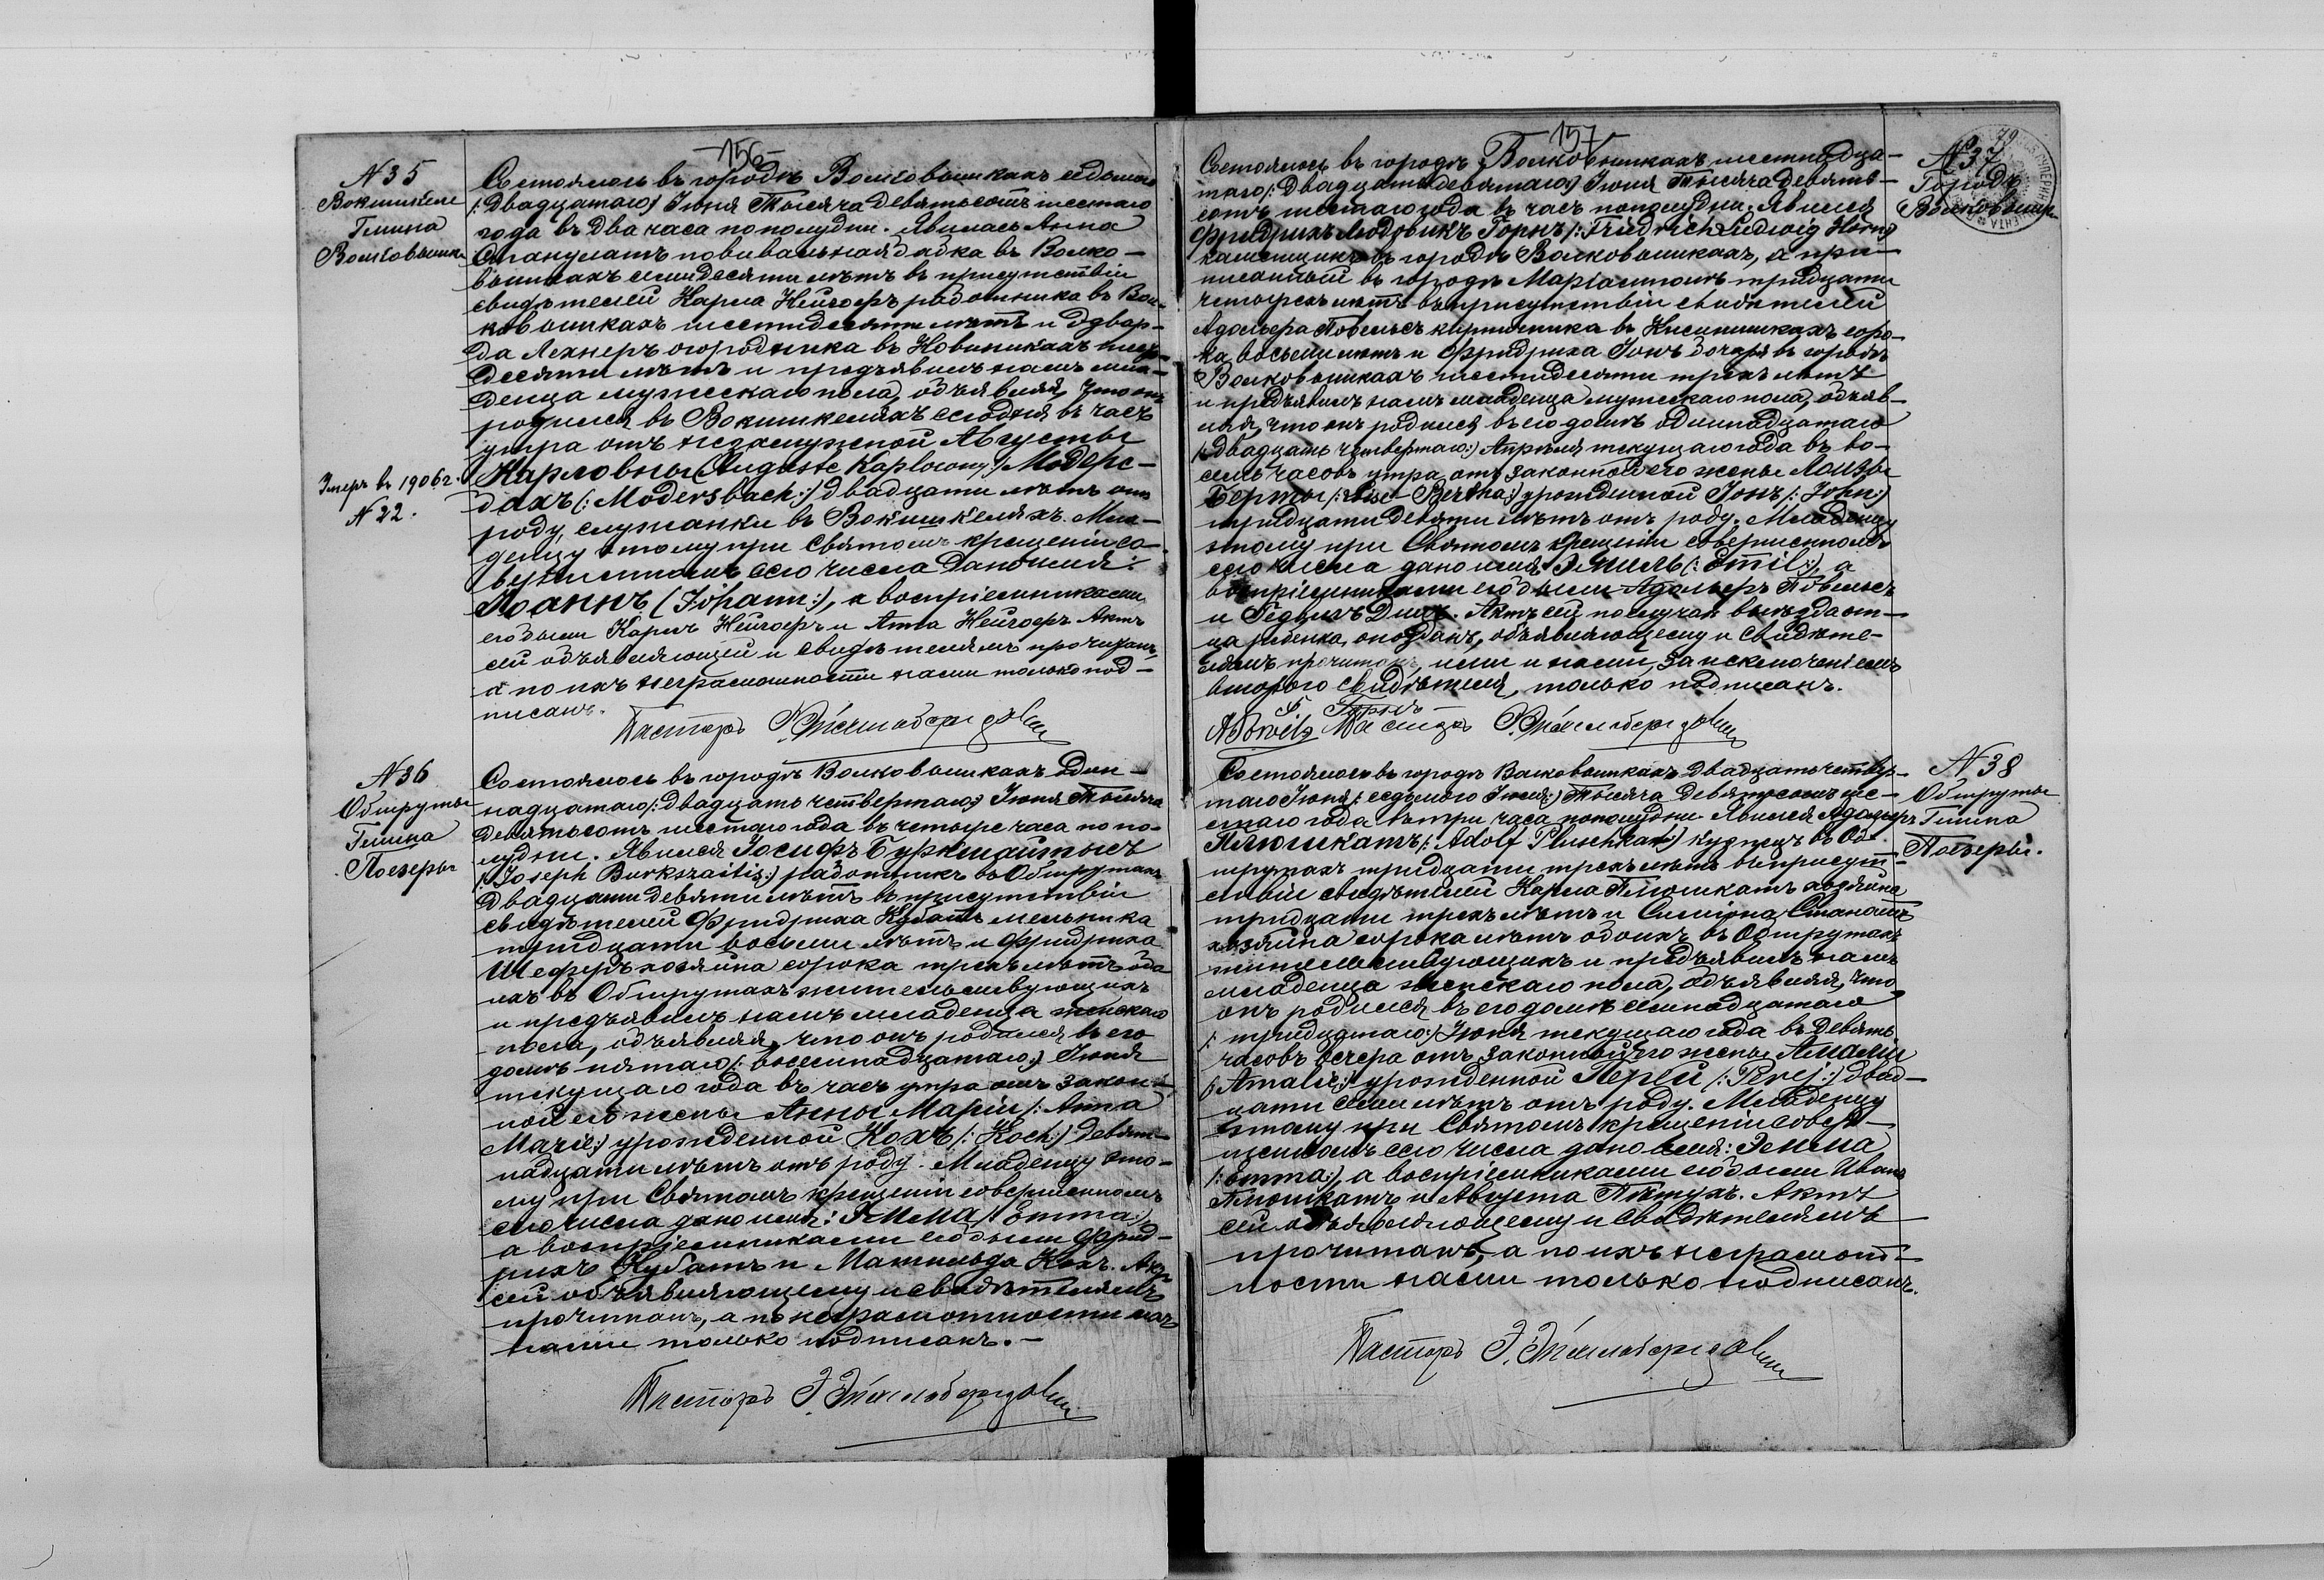 -156-
N 35
Вокишкеле
Гмина
Волковышки
Состоялось въ городѣ Волковышкахъ седьмаго
/: Двадцатаго :/ Іюня Тысяча девятьсотъ шестаго
года въ два часа пополудни. Явилась Анна
повивальная бабка въ Волко-
вышкахъ семидесяти лѣтъ въ присутствіи
свидѣтелей Карла Нейгоферъ работника въ Вол-
ковышкахъ шестидесяти лѣтъ и Эдвар-
да Лехнеръ огородника въ Новиникахъ
десяти лѣтъ и предъявилъ намъ мла-
денца мужескаго пола, объявляя, что онъ
родился въ Вокишкеляхъ сегодня въ часъ
утра отъ незамужной Августы
Карловны (Auguste :/ Модерс-
бахъ /: Modersbach :/ двадцати лѣтъ отъ
роду, служанки въ Вокишкеляхъ. Мла-
денцу этому при Святомъ крещеніи со-
вершенномъ сего числа дано имя:
Іоаннъ (Johann :), а воспріемниками
его были Карлъ Нейгоферъ и Анна Нейгоферъ. Актъ
сей объявляющей и свидѣтелямъ прочитанъ,
а по ихъ неграмотности нами только под-
писанъ.
Умеръ въ 1906 г.
N 22.
Пасторъ
N 36
Обшруты
Гмина
Поезеры
Состоялось въ городѣ Волковышкахъ Один-
надцатаго /: Двадцать четвертаго :/ Іюня Тысяча
девятьсотъ шестаго года въ четыре часа по по-
лудни. Явился Іосифъ Буркшайтысъ
/: Joseph Burkszaitis :/ работникъ въ Обшрутахъ
двадцати девяти лѣтъ въ присутствіи
свидѣтелей Фридриха Кубатъ мельника
тридцати восьми лѣтъ и Фридриха
Шеферъ хозяина сорока трехъ лѣтъ обо-
ихъ въ Обшрутахъ жительствующихъ
и предъявилъ намъ младенца женскаго
пола, объявляя, что онъ родился въ его
домѣ пятаго /: восемнадцатаго :/ Іюня
текущаго года въ часъ утра отъ закон-
ной его жены Анны Маріи /: Anna
Marie :/ урожденной Кохъ /: Koch :/ девят-
надцати лѣтъ отъ роду. Младенцу это-
му при Святомъ крещеніи совершенномъ
сего числа дано имя: Эмма /: Emma :/,
а воспріемниками его были Фрид-
рихъ Кубатъ и Матильда Кохъ. Актъ
сей объявляющему и свидѣтелямъ
прочитанъ, а по неграмотности ихъ
нами только подписанъ. -
Пасторъ
157
N 37
Городъ
Волковышки
Состоялось въ городѣ Волковышкахъ шестнадца-
таго /: Двадцать девятаго :/ Іюня Тысяча девять-
сотъ шестаго года въ часъ пополудни. Явился
Фридрихъ Людовикъ Горнъ /: Friedrich Ludwig Horn :/
каменщикъ въ городѣ Волковышкахъ, а при-
писанный въ городѣ Маріамполѣ тридцати
четырехъ лѣтъ въ присутствіи свидѣтелей
Адольфа Повельсъ кирпичника въ соро-
ка восьми лѣтъ и Фридриха Іонъ бочаря въ городѣ
Волковышкахъ шестидесяти трехъ лѣтъ
и предъявилъ намъ младенца мужескаго пола, объяв-
ляя, что онъ родился въ его домѣ одиннадцатаго
/: Двадцать четвертаго :/ Апрѣля текущаго года въ во-
семь часовъ утра, отъ законной его жены Лоизы
Берты /: Bertha :/ урожденной Іонъ /: John :/
тридцати девяти лѣтъ отъ роду. Младенцу
этому при Святомъ крещеніи совершенномъ
сего числа дано имя: Эмиль /: Emil :/, а
воспріемниками его были Адольфъ Повельсъ
и Актъ сей по случаю выѣзда от-
ца ребенка, опозданъ, объявляющему и свидѣте-
лямъ прочитанъ, ими и нами, за исключеніемъ
втораго свидѣтеля, только подписанъ.
Ф. Горнъ
Пасторъ
N 38
Обшруты
Гмина
Поезеры.
Состоялось въ городѣ Волковышкахъ Двадцать четвер-
таго Іюня /: седьмого Іюля :/ Тысяча девятьсотъ ше-
стаго года въ три часа пополудни. Явился Адольфъ
Плюшкатъ /: Adolf Pluschkat :/ кузнецъ въ Об-
шрутахъ тридцати трехъ лѣтъ въ присут-
ствіи свидѣтелей Карла Плюшкатъ хозяина
тридцати трехъ лѣтъ и Симіона
хозяина сорока лѣтъ обоихъ въ Обшрутахъ
жительствующихъ и предъявилъ намъ
младенца женскаго пола, объявляя, что
онъ родился въ его домѣ семнадцатаго
/: тридцатаго :/ Іюня текущаго года въ девять
часовъ вечера отъ законной его жены Амаліи
/: Amalie :/ урожденной Перей /: Perej :/ двад-
цати семи лѣтъ отъ роду. Младенцу
этому при Святомъ крещеніи совер-
шенномъ сего числа дано имя: Эмма
/: Emma :/, а воспріемниками его были Иванъ
Плюшкатъ и Августа Актъ
сей объявляющему и свидѣтелямъ
прочитанъ, а по ихъ неграмот-
ности нами только подписанъ.
Пасторъ